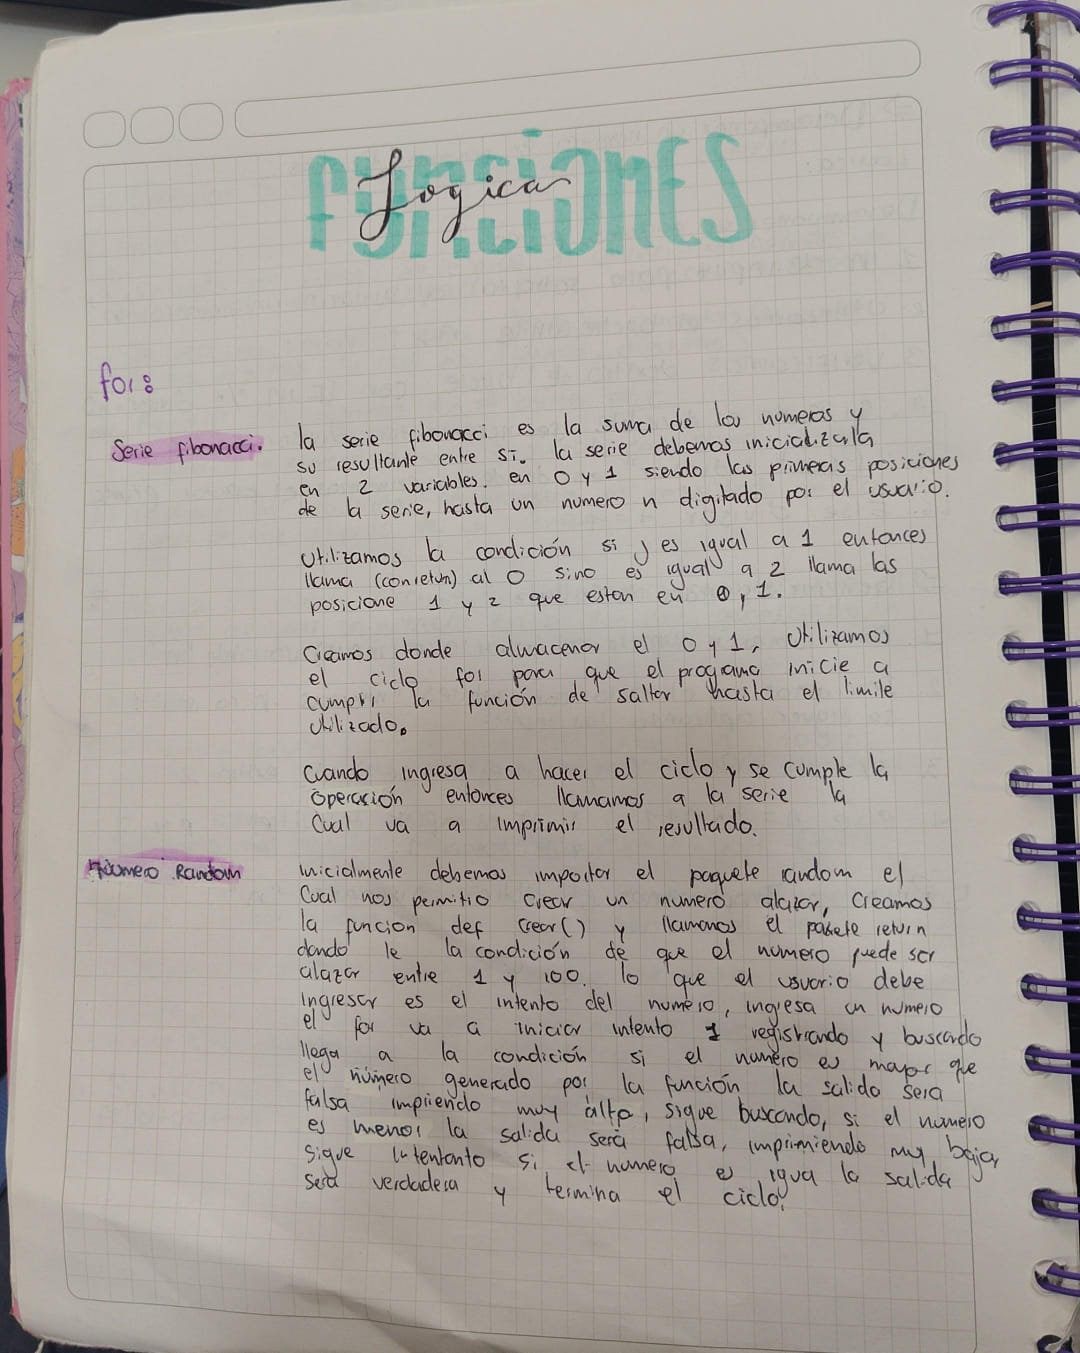 funciones
Logica
for:
Serie fibonacci.
la serie fibonacci es la suma de los numeros y
su resultante entre si. la serie debemos inicializarla
en 2 variables. en 0 y 1 siendo las primeras posiciones
de la serie, hasta un numero n digitado por el usuario.
Utilizamos la condición si j es igual a 1 entonces
llama (con return) al 0 sino es igual a 2 llama las
posicione 1 y 2 que estan en 0, 1.
Creamos donde almacenar el 0 y 1, Utilizamos
el ciclo for para que el programa inicie a
cumplir la función de saltar hasta el limite
Utilizado.
Cuando ingresa a hacer el ciclo y se cumple la
operación entonces llamamos a la serie la
Cual va a imprimir el resultado.
Número Random
Inicialmente debemos importar el paquete random el
Cual nos permitio crear un numero alazar, Creamos
la funcion def crear() y llamamos el pakete return
dando le la condición de que el numero puede ser
alazar entre 1 y 100. lo que el usuario debe
ingresar es el intento del numero, ingresa un numero
el for va a iniciar intento 1 registrando y buscando
llega a la condición si el numero es mayor que
el número generado por la función la salida sera
falsa impriendo muy alto, sigue buscando, si el numero
es menor la salida será falsa, imprimiendo muy bajo,
sigue intentanto si el numero es igua la salida
será verdadera y termina el ciclo.